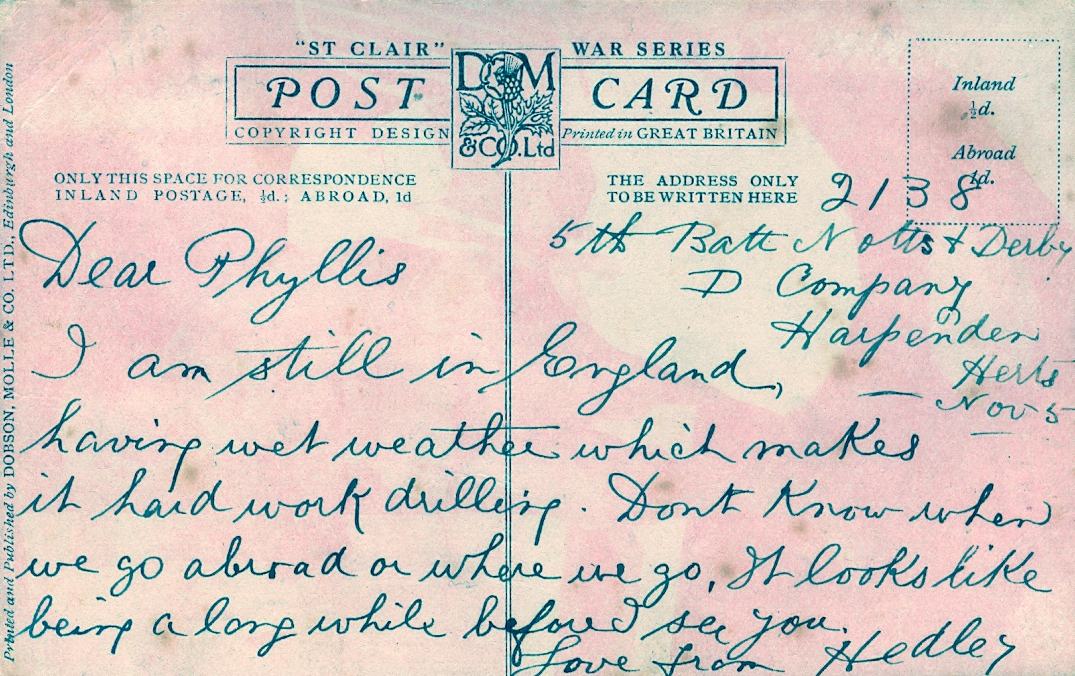 "ST CLAIR" WAR SERIES
POST CARD
D M & CO. Ltd
COPYRIGHT DESIGN Printed in GREAT BRITAIN
ONLY THIS SPACE FOR CORRESPONDENCE
INLAND POSTAGE, ½d.; ABROAD, 1d
THE ADDRESS ONLY
TO BE WRITTEN HERE
Inland
½d.
Abroad
1d.
Printed and Published by DOBSON, MOLLE & CO. LTD., Edinburgh and London
2138
5th Batt Notts & Derby
D Company
Harpenden
Herts
Nov 5
Dear Phyllis
I am still in England,
having wet weather which makes
it hard work drilling. Dont Know when
we go abroad or where we go, It looks like
being a long while before I see you.
Love from Hedley